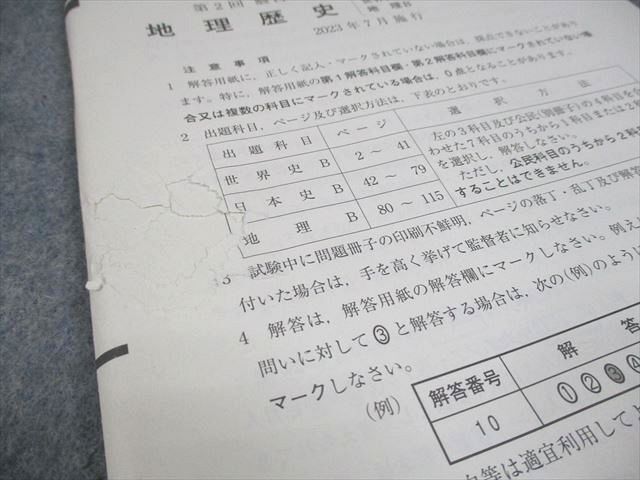 第2回
地理歴史
2023年7月施行
注意事項
1 解答用紙に，正しく記入・マークされていない場合は，採点できないことがあり
ます。特に，解答用紙の第1解答科目欄・第2解答科目欄にマークされていない場
合又は複数の科目にマークされている場合は，0点となることがあります。
2 出題科目，ページ及び選択方法は，下表のとおりです。
出題科目 ページ 選択方法
世界史B 2～41
日本史B 42～79
地理B 80～115
左の3科目及び公民(別冊子)の4科目を合
わせた7科目のうちから1科目または2
を選択し，解答しなさい。
ただし，公民科目のうちから2科
することはできません。
3 試験中に問題冊子の印刷不鮮明，ページの落丁・乱丁及び解答
付いた場合は，手を高く挙げて監督者に知らせなさい。
4 解答は，解答用紙の解答欄にマークしなさい。例え
問いに対して③と解答する場合は，次の(例)のように
マークしなさい。
(例)
解答番号 解答
10 ①②③④
等は適宜利用して